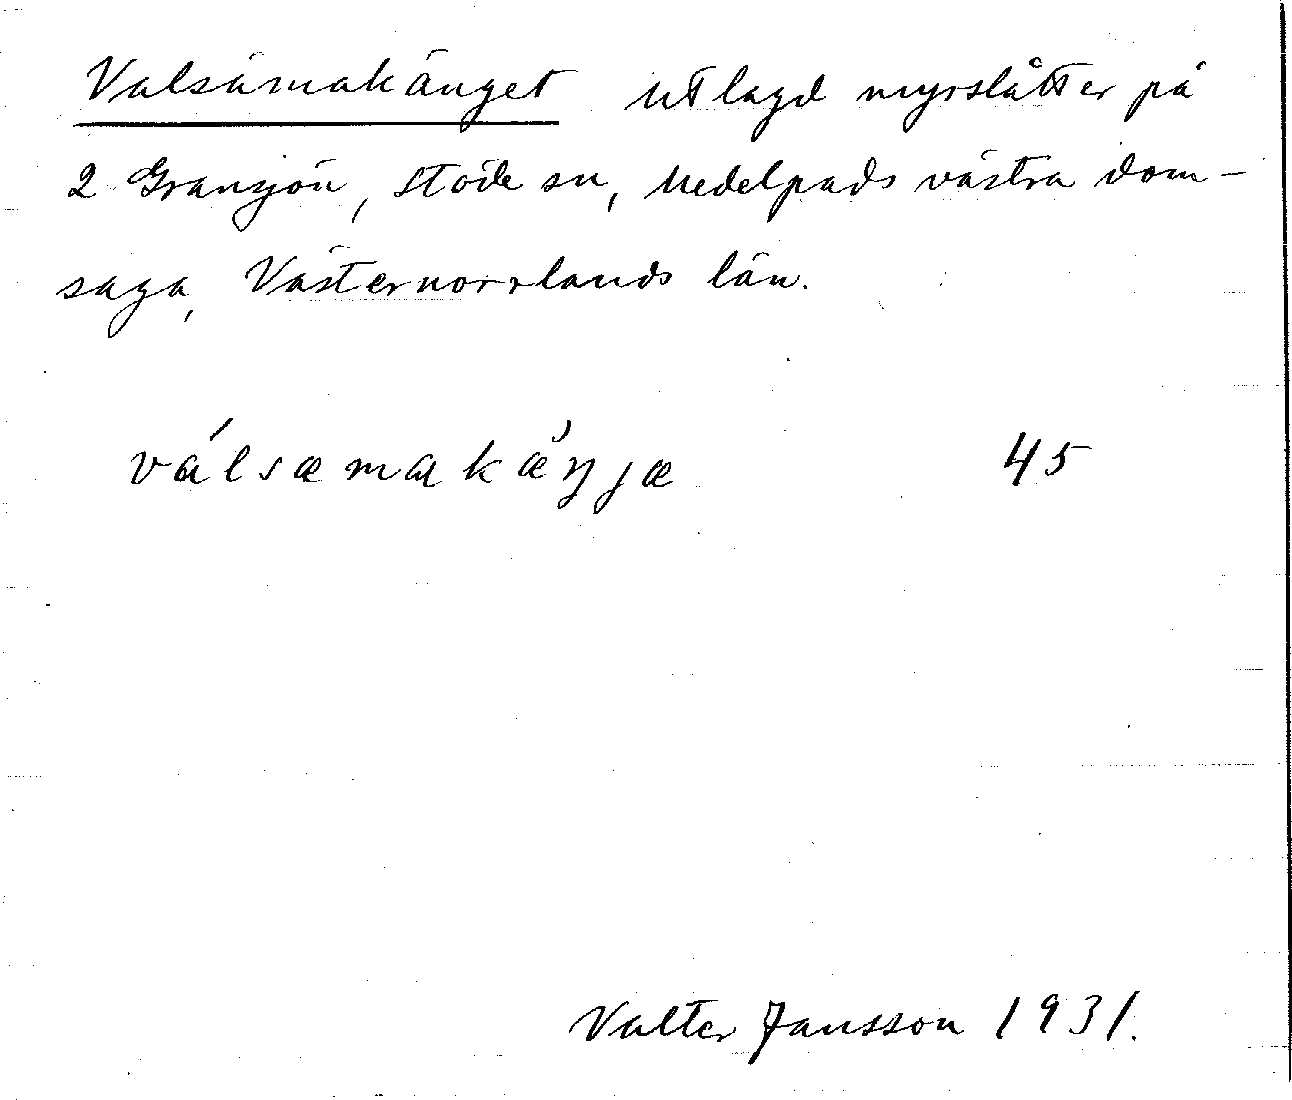 Valsämakänget utlagd myrslåtter på
2 Gransjön, Stöde sn, Medelpads västra dom-
saga, Västernorrlands län.
válsæmakæ̀ŋjæ 45
Valter Jansson 1931.